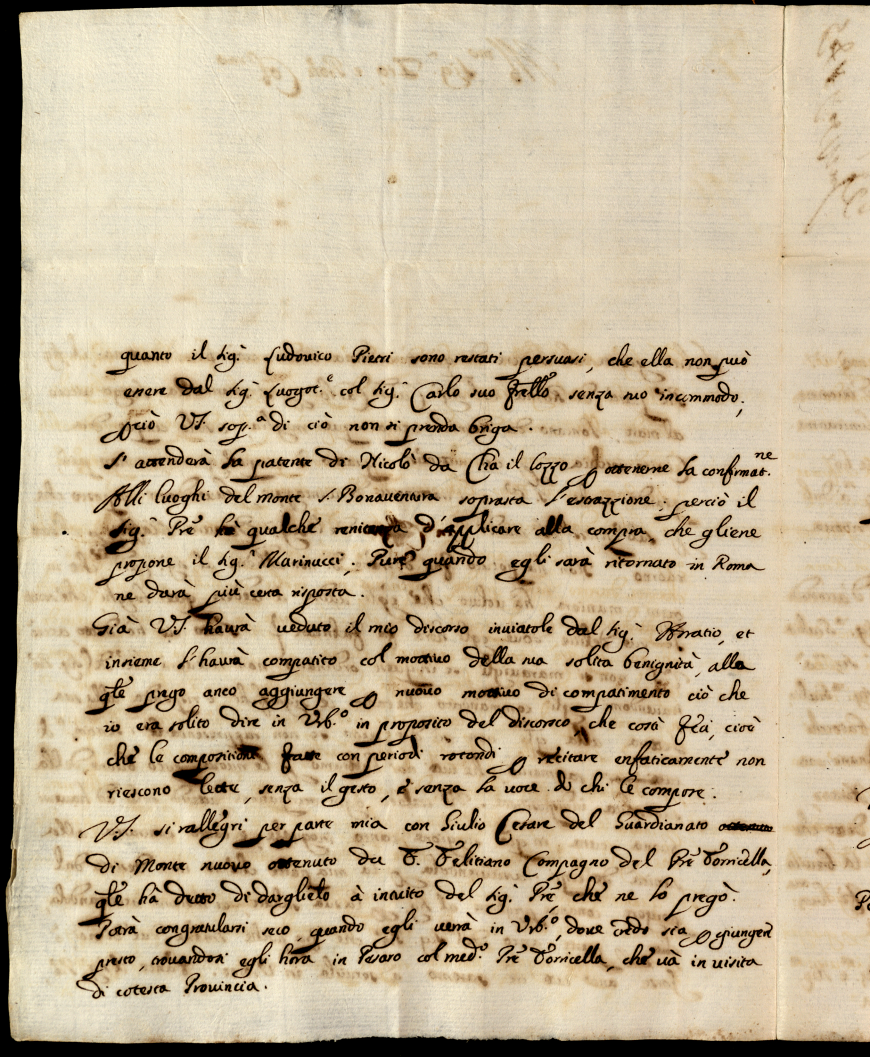 quanto il Sig.r Ludovico Pietri sono restati persuasi, che ella non può
essere dal Sig.r Luogot.e col Sig.r Carlo suo frello senza suo incommodo,
p ciò VS. sop.a di ciò non si prenda briga.
S'attenderà la patente di Nicolò da Chà il Lozzo p ottenerne la confirmat.ne
Alli luoghi del monte S. Bonaventura soprasta l'estrazzione; perciò il
Sig.r Pre hà qualche d'applicare alla compra, che gliene
propone il Sig.r Marinucci. Pure quando egli sarà ritornato in Roma
ne darà più certa risposta.
Già VS. havrà veduto il mio discorso inviatole dal Sig.r Horatio, et
insieme l'havrà compatito col mottivo della sua solita benignità, alla
qle prego anco aggiungere p nuovo mottivo di compatimento ciò che
io era solito dire in Urb.o in proposito del discorso, che costì feci, cioè
che le compositioni fatte con periodi rotondi p recitare enfaticamente non
riescono lette, senza il gesto, e senza la voce di chi le compose.
VS. si rallegri per parte mia con Giulio Cesare del Guardianato
di Monte nuovo ottenuto da Felitiano Compagno del Pre Torricella,
qle hà detto di darglielo à intuito del Sig.r Pre che ne lo pregò.
Potrà congratularsi seco, quando egli verrà in Urb.o, dove credo sia p giungere
presto, trovandosi egli hora in Pesaro col med.o Pre Torricella, che và in visita
di cotesta Provincia.